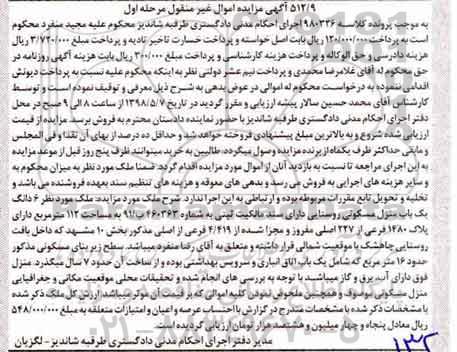 ۵۱۲/۹ آگهی مزایده اموال غیر منقول مرحله اول
به موجب پرونده کلاسه ۹۸۰۳۳۶ اجرای احکام مدنی دادگستری طرقبه شاندیز محکوم علیه مجید منفرد محکوم
است به پرداخت ۱۲۰/۰۰۰/۰۰۰ ریال بابت اصل خواسته و پرداخت خسارت تاخیر تادیه و پرداخت مبلغ ۳/۷۲۰/۰۰۰ ریال
هزینه دادرسی و حق الوکاله و پرداخت هزینه کارشناسی و پرداخت مبلغ ۳۰۰/۰۰۰ ریال بابت هزینه آگهی روزنامه در
حق محکوم له آقای غلامرضا محمدی و پرداخت نیم عشر دولتی نظر به اینکه محکوم علیه نسبت به پرداخت دیونش
اقدامی ننموده به درخواست محکوم له اموالی در عوض بدهی به شرح ذیل معرفی و توقیف نموده است و توسط
کارشناس آقای محمد حسین سالار پیشه ارزیابی و مقرر گردید در تاریخ ۱۳۹۸/۵/۷ از ساعت ۸ الی ۹ صبح در محل
دفتر اجرای احکام مدنی دادگستری طرقبه شاندیز با حضور نماینده دادستان محترم به فروش برسد مزایده از قیمت
ارزیابی شده شروع و به بالاترین مبلغ پیشنهادی فروخته خواهد شد و حداقل ده درصد از بهای آن نقدا وفی المجلس
و مابقی حداکثر ظرف یکماه از برنده مزایده وصول میگردد. طالبین به خرید میتوانند ظرف پنج روز قبل از موعد مزایده
به این اجرای مراجعه تا نسبت به بازدید آنان از اموال مورد مزایده اقدام گردد. ضمنا ملک مورد نظر به میزان محکوم به
و سایر هزینه های اجرایی به فروش می رسد و بدهی های معوقه و هزینه های تنظیم سند بعهده فروشنده می باشد و
تخلیه و تحویل تابع مقررات مربوطه بوده و ارتباطی به این اجرا ندارد. شرح ملک مورد مزایده: ملک مورد نظر ۶ دانگ
یک باب منزل مسکونی روستایی دارای سند مالکیت ثبتی به شماره ۴۶۰۳۶۳ ب/۹۱ به مساحت ۱۱۲ مترمربع دارای
پلاک ۱۴۸۰ فرعی از ۲۲۷ اصلی مفروز و مجزا شده از ۴/۴۱۹ فرعی از اصلی مذکور بخش ۱۰ مشهد که داخل بافت
روستایی چاهشک با موقعیت شمالی قرار داشته و متعلق به آقای رضا منفرد میباشد. سطح زیر بنای مسکونی مذکور
حدود ۱۶ متر مربع که شامل یک باب اتاق انباری و سرویس بهداشتی بوده و از ساخت آن حدود ۷ سال میگذرد. منزل
فوق دارای آب، برق و گاز میباشد. با توجه به بررسی های انجام شده و تحقیقات محلی موقعیت مکانی و جغرافیایی
منزل مسکونی موصوف و همچنین ملحوض نمودن کلیه عواملی که بر قیمت آن موثر میباشد ارزش کل ملک ذکر شده
با مشخصات ذکر شده با مشخصات مندرج در گزارش با احتساب عرصه و اعیان و امتیازات متعلقه به مبلغ ۵۴۸/۰۰۰/۰۰۰
ریال معادل پنجاه و چهار میلیون و هشتصد هزار تومان ارزیابی گردیده است.
مدیر دفتر اجرای احکام مدنی دادگستری طرقبه شاندیز - لگزیان